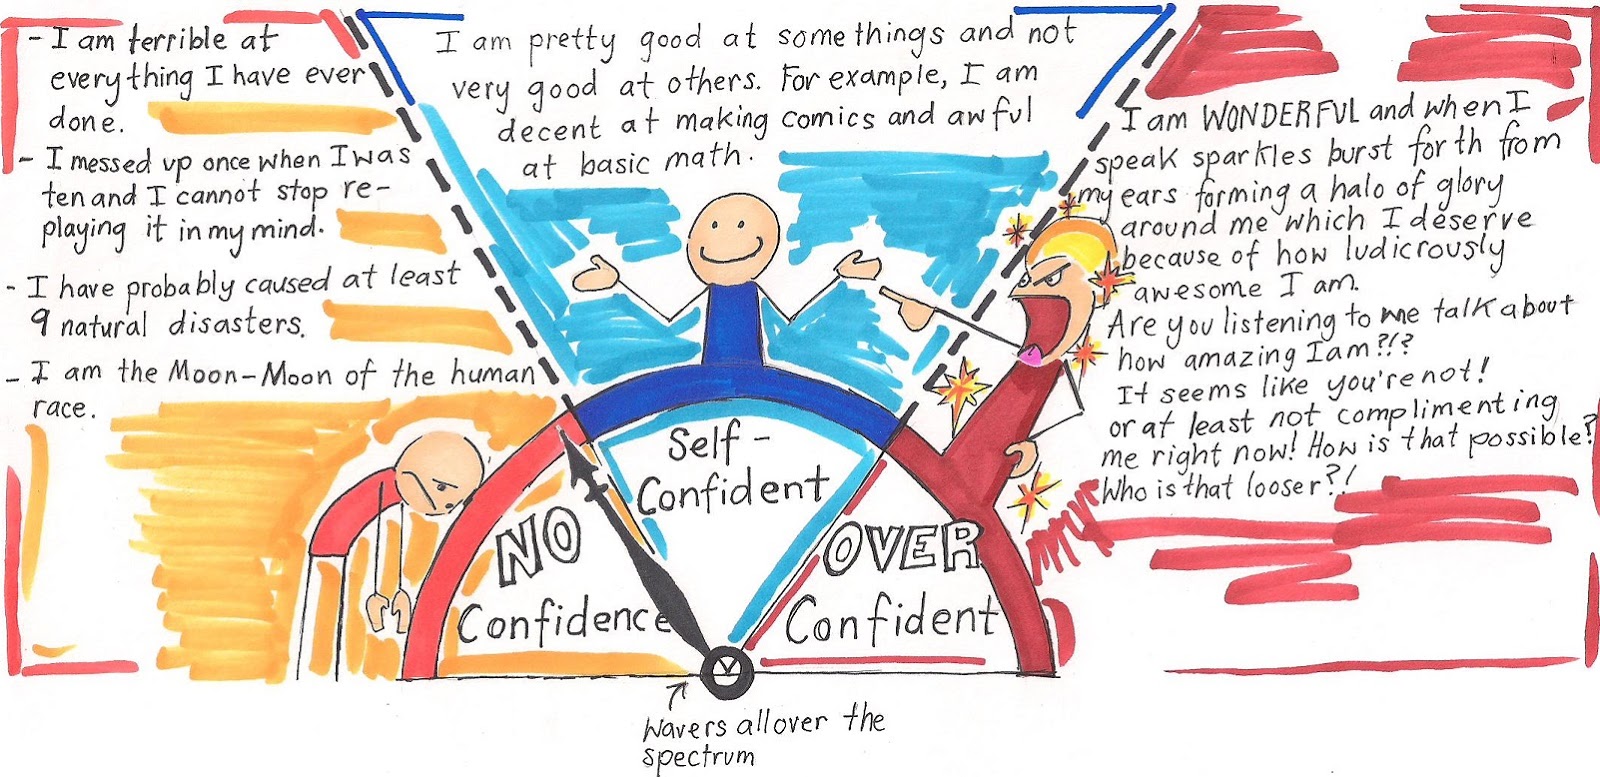 - I am terrible at
everything I have ever
done.
- I messed up once when I was
ten and I cannot stop re-
playing it in my mind.
- I have probably caused at least
9 natural disasters.
- I am the Moon-Moon of the human
race.
I am pretty good at some things and not
very good at others. For example, I am
decent at making comics and awful
at basic math.
I am WONDERFUL and when I
speak sparkles burst forth from
my ears forming a halo of glory
around me which I deserve
because of how ludicrously
awesome I am.
Are you listening to me talk about
how amazing I am?!?
It seems like you're not!
or at least not complimenting
me right now! How is that possible?
Who is that looser?!
NO
Confidence
Self-
Confident
OVER
Confident
Wavers all over the
spectrum